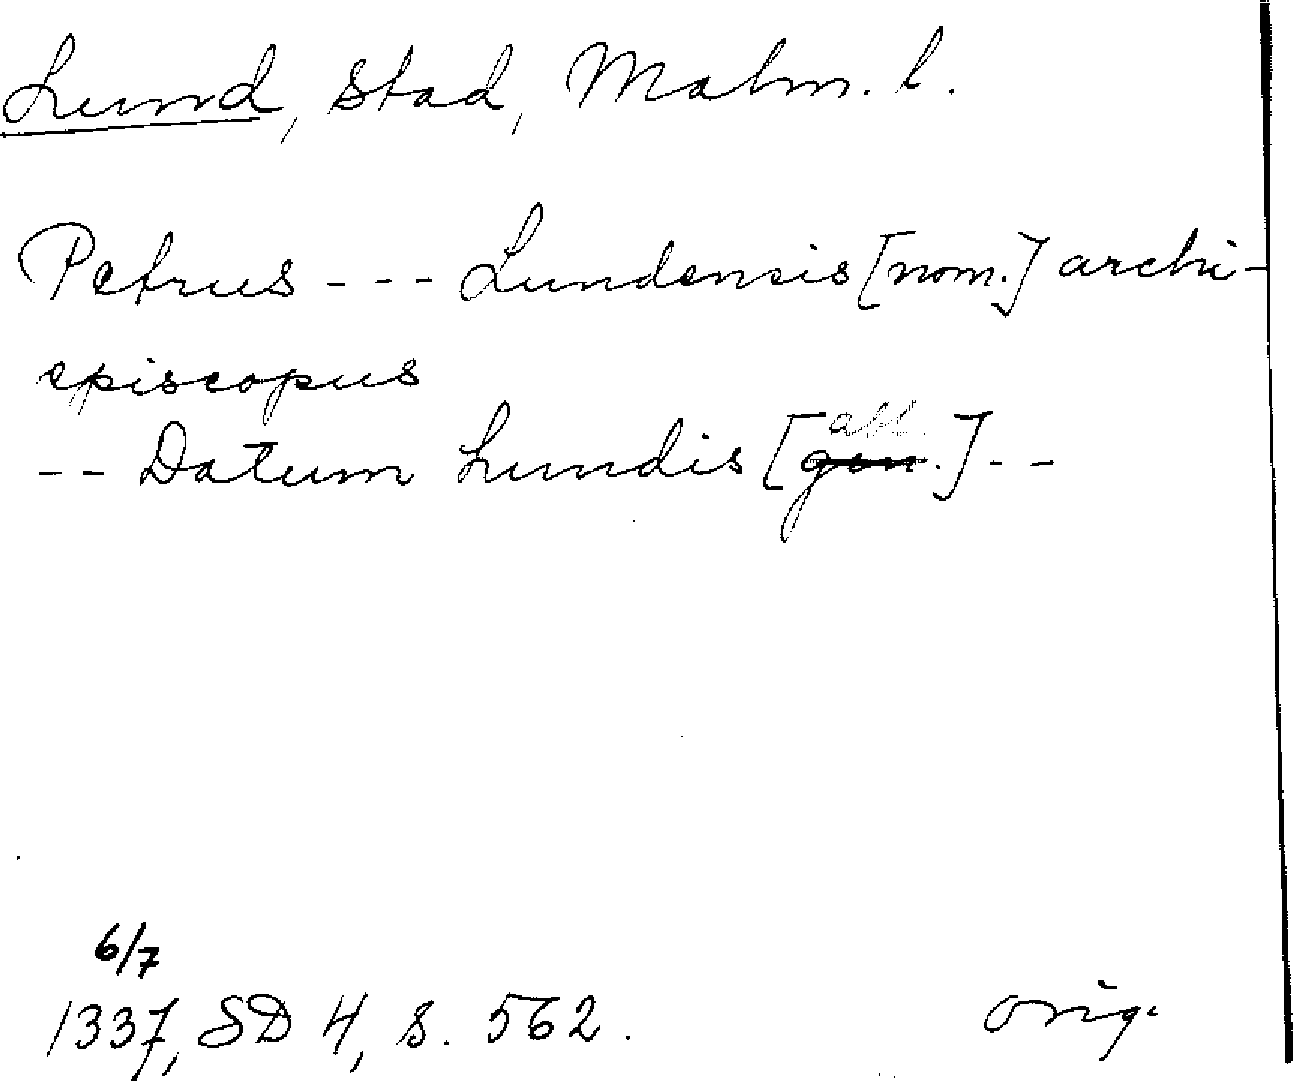 Lund, stad, Malm. l.
Petrus --- Lundensis [nom.] archi-
episcopus
-- Datum Lundis [gen. abl.] --
6/7
1337, SD 4, s. 562.
orig.